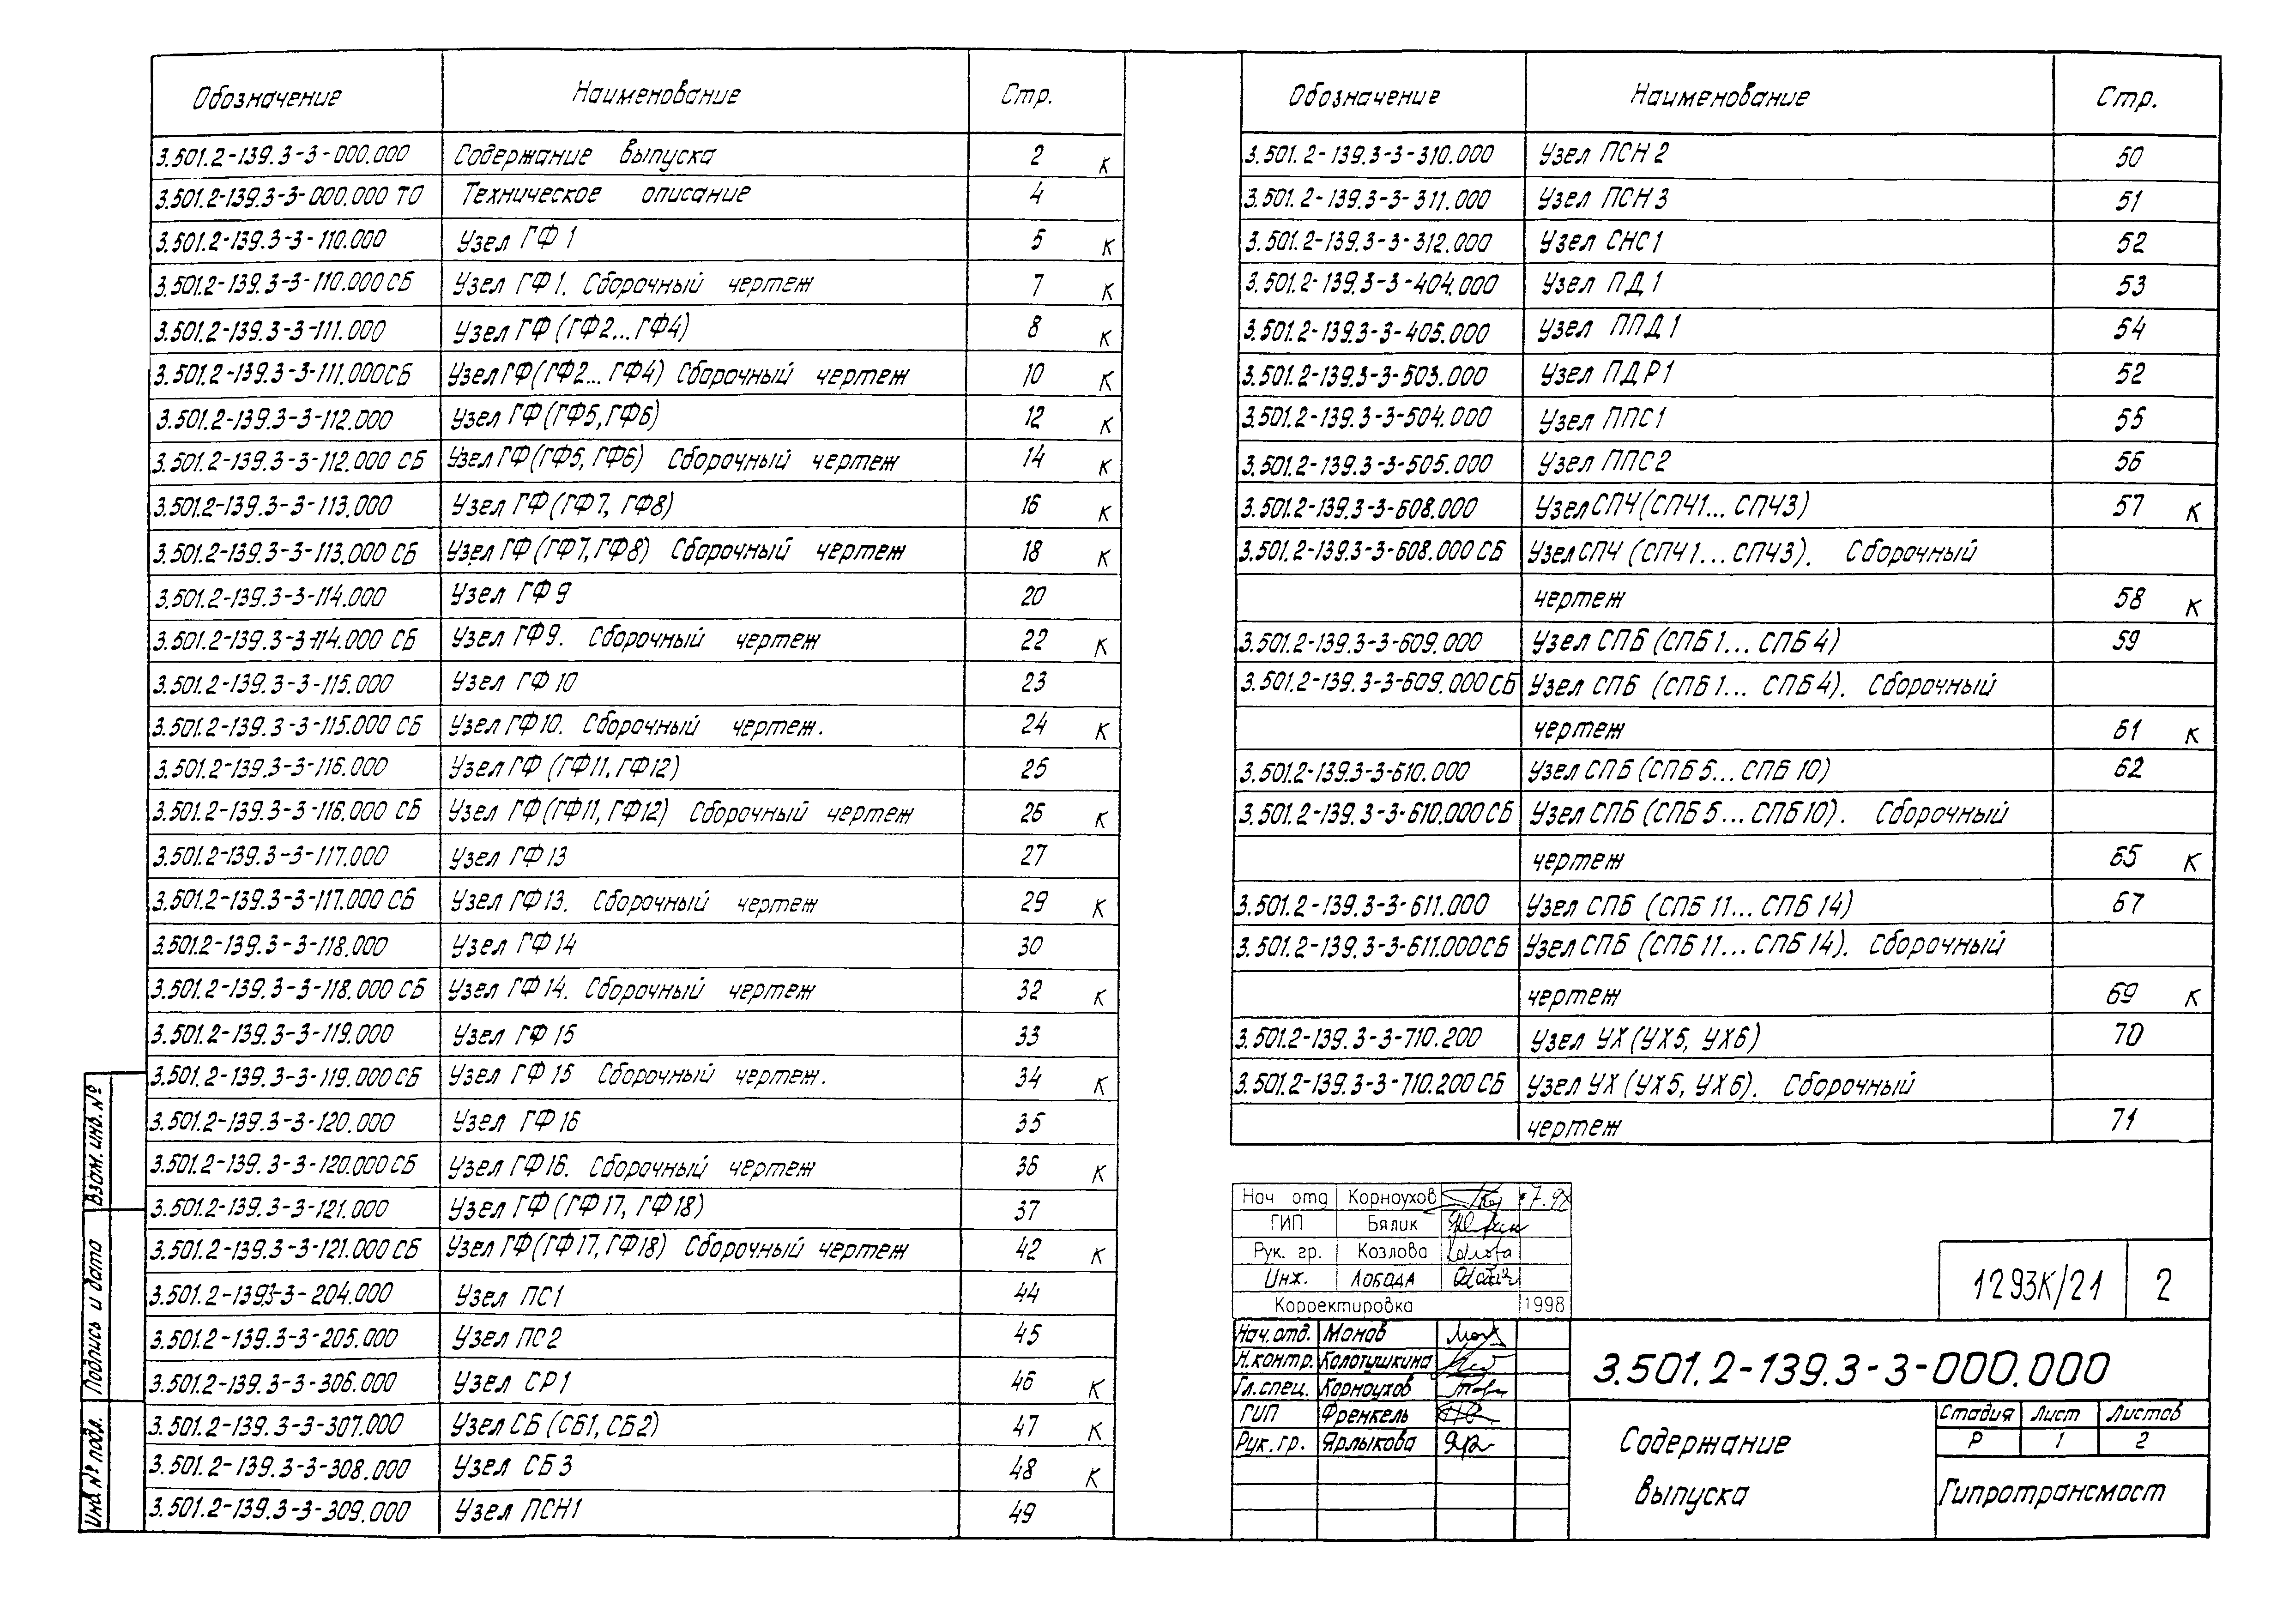 Обозначение Наименование Стр.
3.501.2-139.3-3-000.000 Содержание выпуска 2 К
3.501.2-139.3-3-000.000 ТО Техническое описание 4
3.501.2-139.3-3-110.000 Узел ГФ 1 5 К
3.501.2-139.3-3-110.000 СБ Узел ГФ 1. Сборочный чертеж 7 К
3.501.2-139.3-3-111.000 Узел ГФ (ГФ2... ГФ4) 8 К
3.501.2-139.3-3-111.000СБ Узел ГФ (ГФ2... ГФ4) Сборочный чертеж 10 К
3.501.2-139.3-3-112.000 Узел ГФ (ГФ5, ГФ6) 12 К
3.501.2-139.3-3-112.000 СБ Узел ГФ (ГФ5, ГФ6) Сборочный чертеж 14 К
3.501.2-139.3-3-113.000 Узел ГФ (ГФ7, ГФ8) 16 К
3.501.2-139.3-3-113.000 СБ Узел ГФ (ГФ7, ГФ8) Сборочный чертеж 18 К
3.501.2-139.3-3-114.000 Узел ГФ 9 20
3.501.2-139.3-3-114.000 СБ Узел ГФ9. Сборочный чертеж 22 К
3.501.2-139.3-3-115.000 Узел ГФ 10 23
3.501.2-139.3-3-115.000 СБ Узел ГФ10. Сборочный чертеж. 24 К
3.501.2-139.3-3-116.000 Узел ГФ (ГФ11, ГФ12) 25
3.501.2-139.3-3-116.000 СБ Узел ГФ (ГФ11, ГФ12) Сборочный чертеж 26 К
3.501.2-139.3-3-117.000 Узел ГФ 13 27
3.501.2-139.3-3-117.000 СБ Узел ГФ 13. Сборочный чертеж 29 К
3.501.2-139.3-3-118.000 Узел ГФ 14 30
3.501.2-139.3-3-118.000 СБ Узел ГФ 14. Сборочный чертеж 32 К
3.501.2-139.3-3-119.000 Узел ГФ 15 33
3.501.2-139.3-3-119.000 СБ Узел ГФ 15 Сборочный чертеж. 34 К
3.501.2-139.3-3-120.000 Узел ГФ 16 35
3.501.2-139.3-3-120.000 СБ Узел ГФ16. Сборочный чертеж 36 К
3.501.2-139.3-3-121.000 Узел ГФ (ГФ 17, ГФ 18) 37
3.501.2-139.3-3-121.000 СБ Узел ГФ (ГФ 17, ГФ 18) Сборочный чертеж 42 К
3.501.2-139.3-3-204.000 Узел ПС1 44
3.501.2-139.3-3-205.000 Узел ПС2 45
3.501.2-139.3-3-306.000 Узел СР1 46 К
3.501.2-139.3-3-307.000 Узел СБ (СБ1, СБ2) 47 К
3.501.2-139.3-3-308.000 Узел СБ3 48 К
3.501.2-139.3-3-309.000 Узел ПСН1 49
Взам. инв. №
Подпись и дата
Инв. № подл.
Обозначение Наименование Стр.
3.501.2-139.3-3-310.000 Узел ПСН 2 50
3.501.2-139.3-3-311.000 Узел ПСН 3 51
3.501.2-139.3-3-312.000 Узел СНС1 52
3.501.2-139.3-3-404.000 Узел ПД 1 53
3.501.2-139.3-3-405.000 Узел ППД 1 54
3.501.2-139.3-3-503.000 Узел ПДР1 52
3.501.2-139.3-3-504.000 Узел ППС1 55
3.501.2-139.3-3-505.000 Узел ППС2 56
3.501.2-139.3-3-608.000 Узел СПЧ (СПЧ1... СПЧ3) 57 К
3.501.2-139.3-3-608.000 СБ Узел СПЧ (СПЧ1... СПЧ3). Сборочный
чертеж 58 К
3.501.2-139.3-3-609.000 Узел СПБ (СПБ 1... СПБ 4) 59
3.501.2-139.3-3-609.000 СБ Узел СПБ (СПБ 1... СПБ 4). Сборочный
чертеж 61 К
3.501.2-139.3-3-610.000 Узел СПБ (СПБ 5... СПБ 10) 62
3.501.2-139.3-3-610.000 СБ Узел СПБ (СПБ 5... СПБ 10). Сборочный
чертеж 65 К
3.501.2-139.3-3-611.000 Узел СПБ (СПБ 11... СПБ 14) 67
3.501.2-139.3-3-611.000СБ Узел СПБ (СПБ 11... СПБ 14). Сборочный
чертеж 69 К
3.501.2-139.3-3-710.200 Узел УХ (УХ5, УХ6) 70
3.501.2-139.3-3-710.200 СБ Узел УХ (УХ5, УХ6). Сборочный
чертеж 71
Нач отд Корноухов 7.98
ГИП Бялик
Рук. гр. Козлова
Инж. Лобода
Корректировка 1998
1293К/21 2
Нач. отд. Монов
Н. контр. Колотушкина
Гл. спец. Корноухов
ГИП Френкель
Рук. гр. Ярлыкова
3.501.2-139.3-3-000.000
Содержание
выпуска
Стадия Лист Листов
Р 1 2
Гипротрансмост